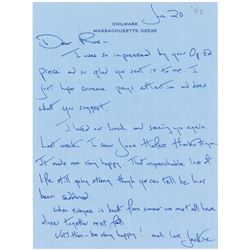 CHILMARK
MASSACHUSETTS 02535
June 20 '93
Dear Rose -
I was so impressed by your Op-Ed
piece and so glad you sent it to me. I
just hope someone pays attention and does
what you suggest.
I loved our lunch and seeing you again.
Last week I saw
It made me very happy. That unquenchable love of
life still going strong though you can tell he has
been saddened.
When everyone is back from summer we must all have
dinner together next fall
Until then - be very happy! much love Jackie